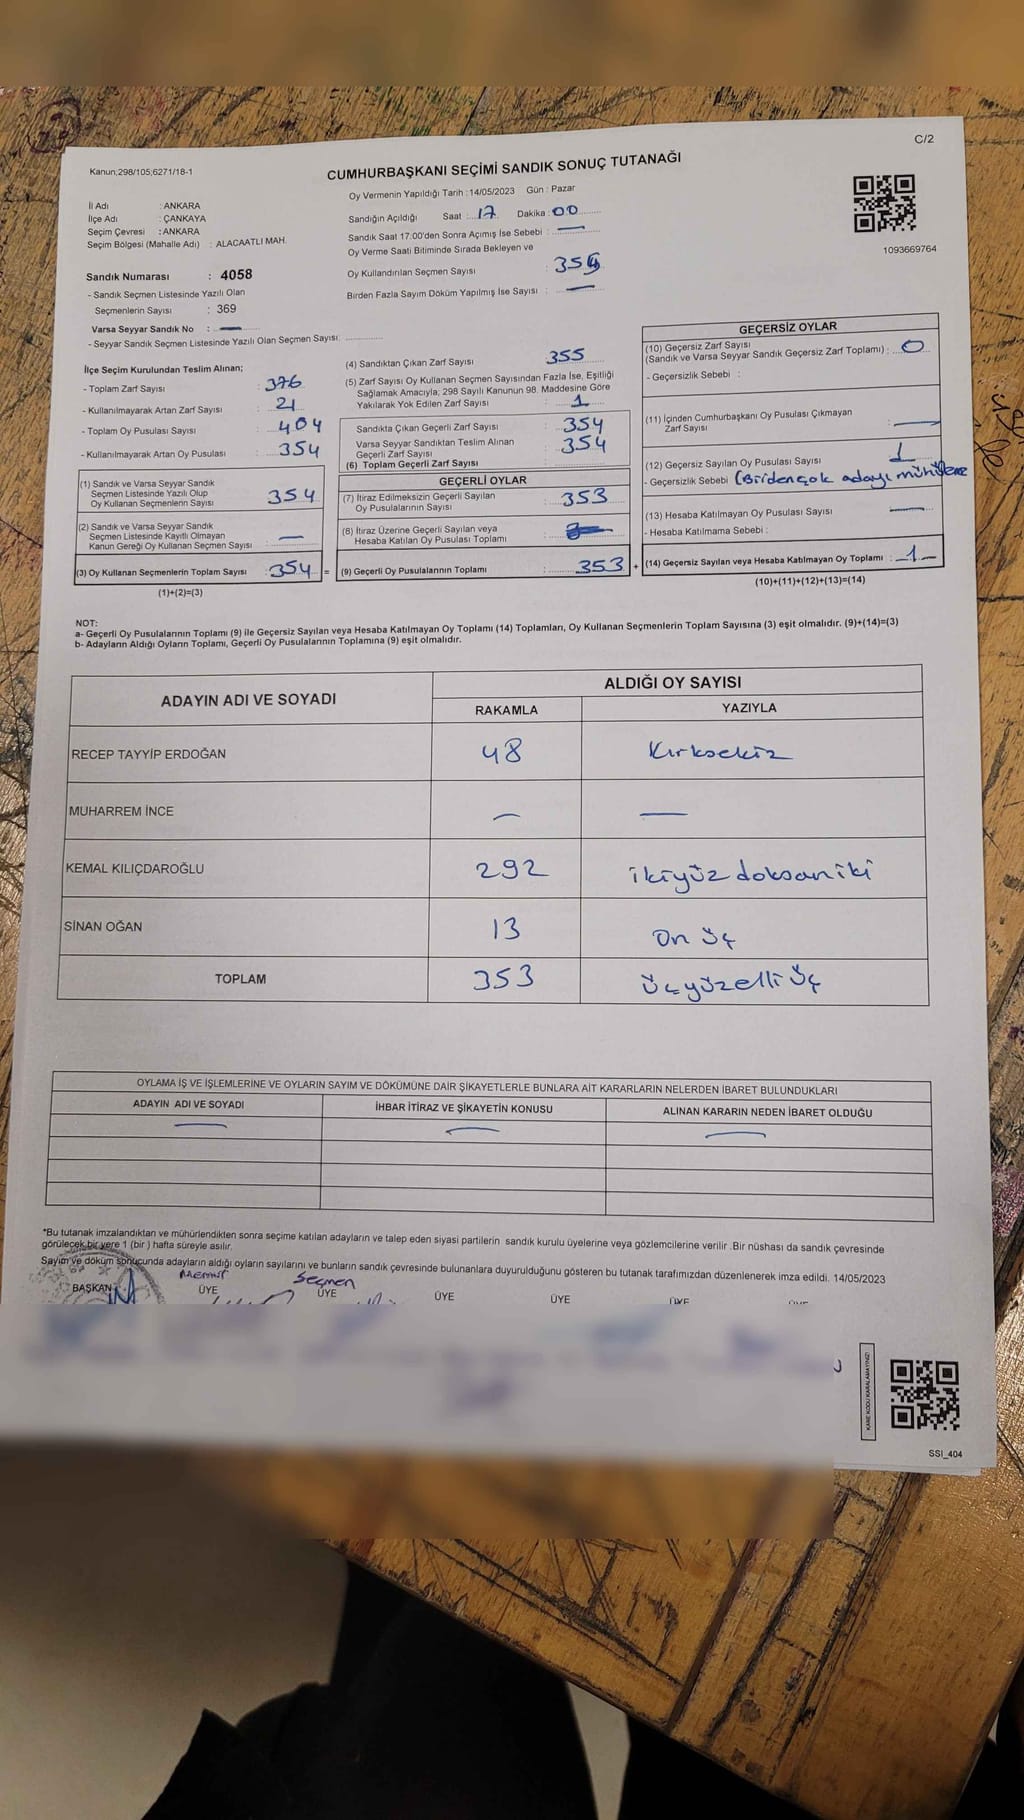 C/2
Kanun;298/105;6271/18-1
CUMHURBAŞKANI SEÇİMİ SANDIK SONUÇ TUTANAĞI
Oy Vermenin Yapıldığı Tarih : 14/05/2023 Gün : Pazar
İl Adı : ANKARA
İlçe Adı : ÇANKAYA
Seçim Çevresi : ANKARA
Seçim Bölgesi (Mahalle Adı) : ALACAATLI MAH.
Sandığın Açıldığı Saat : 17 Dakika : 00
Sandık Saat 17:00'den Sonra Açımış İse Sebebi : —
Oy Verme Saati Bitiminde Sırada Bekleyen ve
Oy Kullandırılan Seçmen Sayısı :
Birden Fazla Sayım Döküm Yapılmış İse Sayısı : —
1093669764
Sandık Numarası : 4058
- Sandık Seçmen Listesinde Yazılı Olan
Seçmenlerin Sayısı : 369
Varsa Seyyar Sandık No : —
- Seyyar Sandık Seçmen Listesinde Yazılı Olan Seçmen Sayısı:
İlçe Seçim Kurulundan Teslim Alınan;
- Toplam Zarf Sayısı : 376
- Kullanılmayarak Artan Zarf Sayısı : 21
- Toplam Oy Pusulası Sayısı : 404
- Kullanılmayarak Artan Oy Pusulası : 354
(1) Sandık ve Varsa Seyyar Sandık
Seçmen Listesinde Yazılı Olup
Oy Kullanan Seçmenlerin Sayısı 354
(2) Sandık ve Varsa Seyyar Sandık
Seçmen Listesinde Kayıtlı Olmayan
Kanun Gereği Oy Kullanan Seçmen Sayısı : —
(3) Oy Kullanan Seçmenlerin Toplam Sayısı : 354 =
(1)+(2)=(3)
(4) Sandıktan Çıkan Zarf Sayısı : 355
(5) Zarf Sayısı Oy Kullanan Seçmen Sayısından Fazla İse, Eşitliği
Sağlamak Amacıyla; 298 Sayılı Kanunun 98. Maddesine Göre
Yakılarak Yok Edilen Zarf Sayısı : 1
Sandıkta Çıkan Geçerli Zarf Sayısı : 354
Varsa Seyyar Sandıktan Teslim Alınan
Geçerli Zarf Sayısı : 354
(6) Toplam Geçerli Zarf Sayısı :
GEÇERLİ OYLAR
(7) İtiraz Edilmeksizin Geçerli Sayılan
Oy Pusulalarının Sayısı : 353
(8) İtiraz Üzerine Geçerli Sayılan veya
Hesaba Katılan Oy Pusulası Toplamı :
(9) Geçerli Oy Pusulalarının Toplamı : 353 +
GEÇERSİZ OYLAR
(10) Geçersiz Zarf Sayısı
(Sandık ve Varsa Seyyar Sandık Geçersiz Zarf Toplamı) : 0
- Geçersizlik Sebebi :
(11) İçinden Cumhurbaşkanı Oy Pusulası Çıkmayan
Zarf Sayısı : —
(12) Geçersiz Sayılan Oy Pusulası Sayısı : 1
- Geçersizlik Sebebi (Birden çok adayı
(13) Hesaba Katılmayan Oy Pusulası Sayısı : —
- Hesaba Katılmama Sebebi :
(14) Geçersiz Sayılan veya Hesaba Katılmayan Oy Toplamı : 1
(10)+(11)+(12)+(13)=(14)
NOT:
a- Geçerli Oy Pusulalarının Toplamı (9) ile Geçersiz Sayılan veya Hesaba Katılmayan Oy Toplamı (14) Toplamları, Oy Kullanan Seçmenlerin Toplam Sayısına (3) eşit olmalıdır. (9)+(14)=(3)
b- Adayların Aldığı Oyların Toplamı, Geçerli Oy Pusulalarının Toplamına (9) eşit olmalıdır.
ADAYIN ADI VE SOYADI
ALDIĞI OY SAYISI
RAKAMLA YAZIYLA
RECEP TAYYİP ERDOĞAN 48 Kırksekiz
MUHARREM İNCE — —
KEMAL KILIÇDAROĞLU 292 ikiyüz doksan iki
SİNAN OĞAN 13 On üç
TOPLAM 353 üçyüzelli üç
OYLAMA İŞ VE İŞLEMLERİNE VE OYLARIN SAYIM VE DÖKÜMÜNE DAİR ŞİKAYETLERLE BUNLARA AİT KARARLARIN NELERDEN İBARET BULUNDUKLARI
ADAYIN ADI VE SOYADI İHBAR İTİRAZ VE ŞİKAYETİN KONUSU ALINAN KARARIN NEDEN İBARET OLDUĞU
— — —
*Bu tutanak imzalandıktan ve mühürlendikten sonra seçime katılan adayların ve talep eden siyasi partilerin sandık kurulu üyelerine veya gözlemcilerine verilir .Bir nüshası da sandık çevresinde
görülecek bir yere 1 (bir ) hafta süreyle asılır.
Sayım ve döküm sonucunda adayların aldığı oyların sayılarını ve bunların sandık çevresinde bulunanlara duyurulduğunu gösteren bu tutanak tarafımızdan düzenlenerek imza edildi. 14/05/2023
Seçmen
BAŞKAN ÜYE ÜYE ÜYE ÜYE ÜYE
KARE KODU KARALAMAYINIZ!
SSI_404